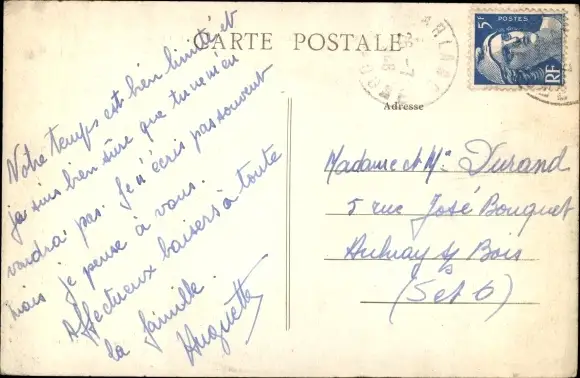 CARTE POSTALE
Notre temps est bien limité et
je suis bien sûre que tu ne m'en
voudra pas. Je n'écris pas souvent
mais je pense à vous.
Affectueux baisers à toute
la famille.
Huguette
5F
POSTES
RF
26-7
48
Adresse
Madame et Mr Durand
5 rue José Bouquet
Aulnay s/s Bois
(Set O)